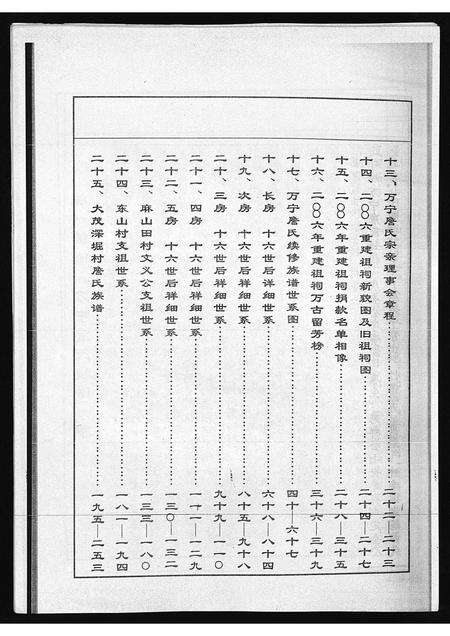 十三、万宁詹氏宗亲理事会章程……二十二—二十三
十四、二〇〇六重建祖祠新貌图及旧祖祠图……二十四—二十七
十五、二〇〇六年重建祖祠捐款名单相像……二十八—三十五
十六、二〇〇六年重建祖祠万古留芳榜……三十六—三十九
十七、万宁詹氏续修族谱世系图……四十—六十七
十八、长房 十六世后详细世系……六十八—八十四
十九、次房 十六世后祥细世系……八十五—九十八
二十、三房 十六世后祥细世系……九十九—一一〇
二十一、四房 十六世后祥细世系……一一一—一二九
二十二、五房 十六世后祥细世系……一三〇—一三二
二十三、麻山田村文义公支祖世系……一三三—一八〇
二十四、东山村支祖世系……一八一—一九四
二十五、大茂深堀村詹氏族谱……一九五—二五三